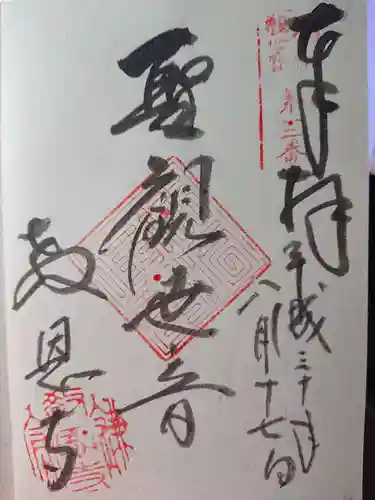 奉拝
第三番
平成三十年
八月十七日
聖観世音
恩寺